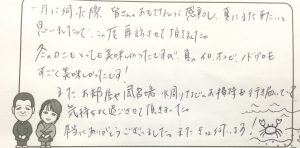 一月に伺った際、皆さんのおもてなしに感動し、夏にもまた来たいと
思いましたので、この度再訪させて頂きました。
冬のカニもとっても美味しかったですが、夏のイカ、オコゼ、ノドグロも
すごく美味しかったです!
またお部屋や風呂場、水周りなどのお掃除も行き届いていて
気持ちよく過ごさせて頂きました。
本当にありがとうございました。またきっと伺います!